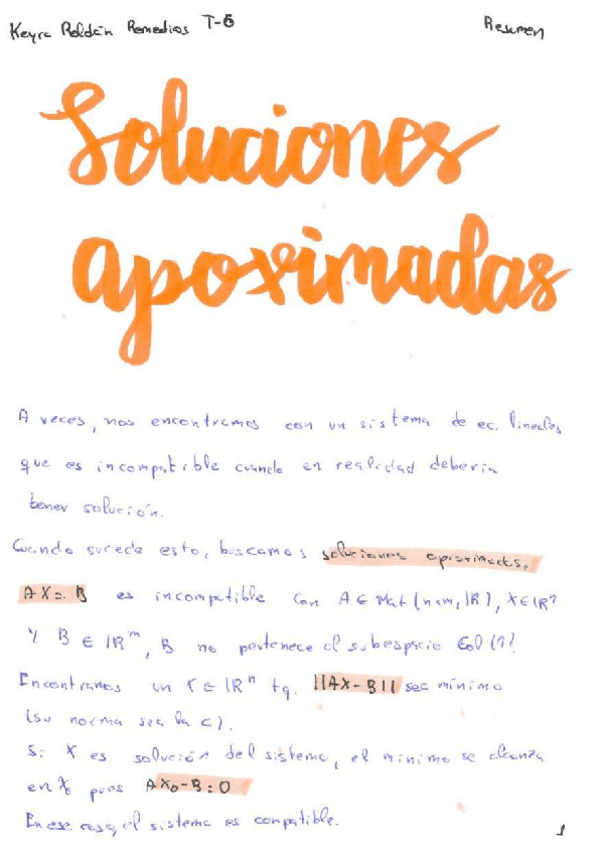 Keyra Roldán Remedios T-6 Resumen
Soluciones
apoximadas
A veces, nos encontramos con un sistema de ec. lineales
que es incompatible cuando en realidad debería
tener solución.
Cuando sucede esto, buscamos soluciones aproximadas.
AX = B es incompatible con A ∈ Mat (n×m, ℝ), X ∈ ℝⁿ
y B ∈ ℝᵐ, B no pertenece al subespacio Col (A).
Encontramos un X ∈ ℝⁿ tq. ||AX - B|| sea mínimo
(su norma sea la <).
Si X es solución del sistema, el mínimo se alcanza
en X₀ pues AX₀ - B = 0
En ese caso, el sistema es compatible.
1